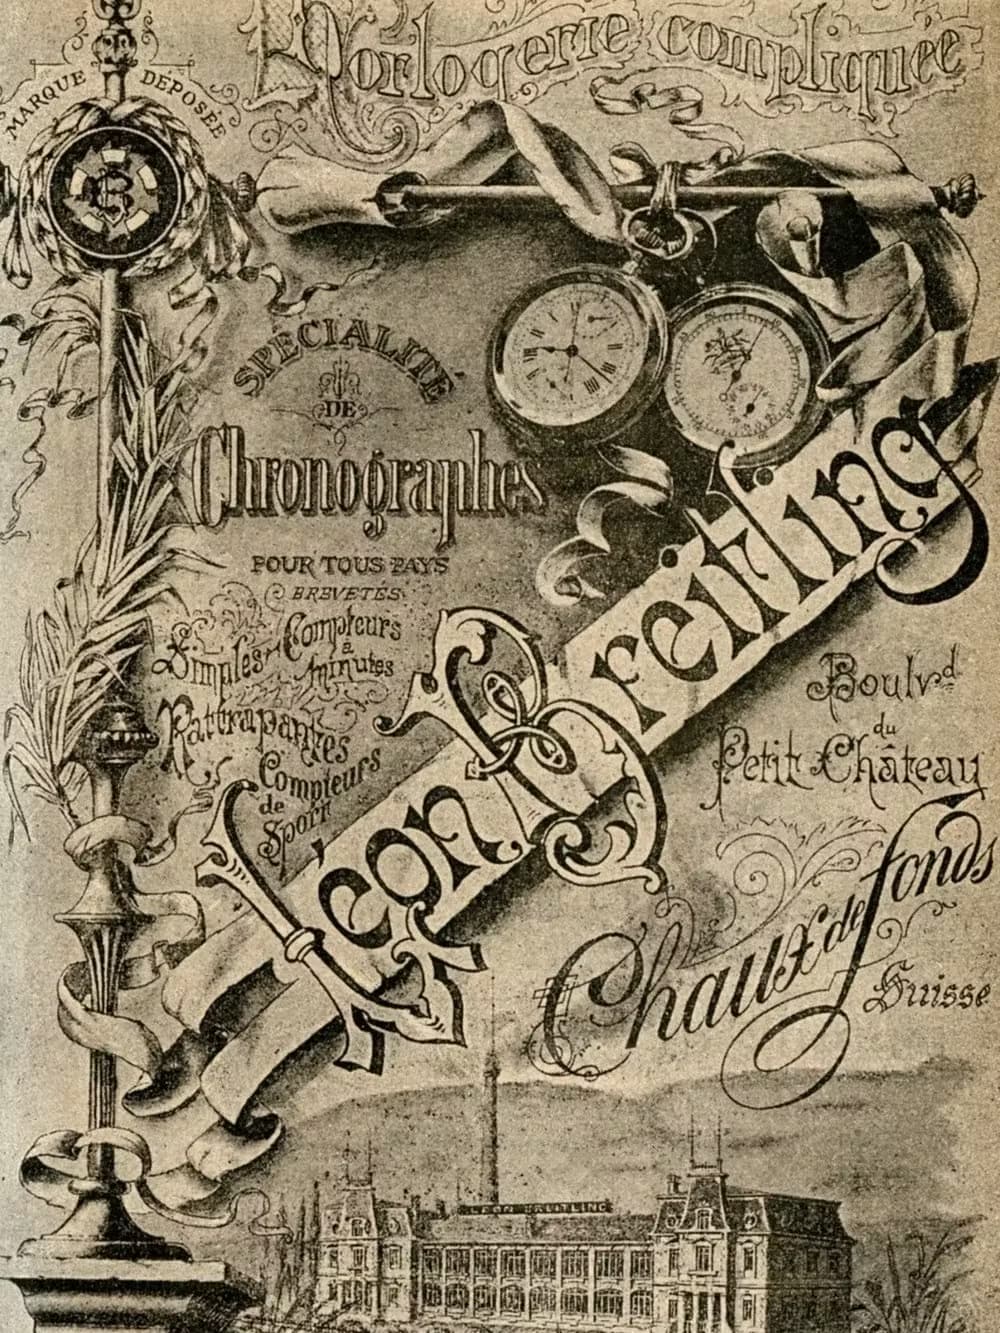 Horlogerie compliquée
MARQUE DÉPOSÉE
SPÉCIALITÉ
DE
Chronographes
POUR TOUS PAYS
BREVETÉS
Simples - Compteurs
à
minutes
Rattrapantes
Compteurs
de
Sport
Léon Breitling
Boulvd
du
Petit Château
Chaux de fonds
Suisse
LEON BREITLING